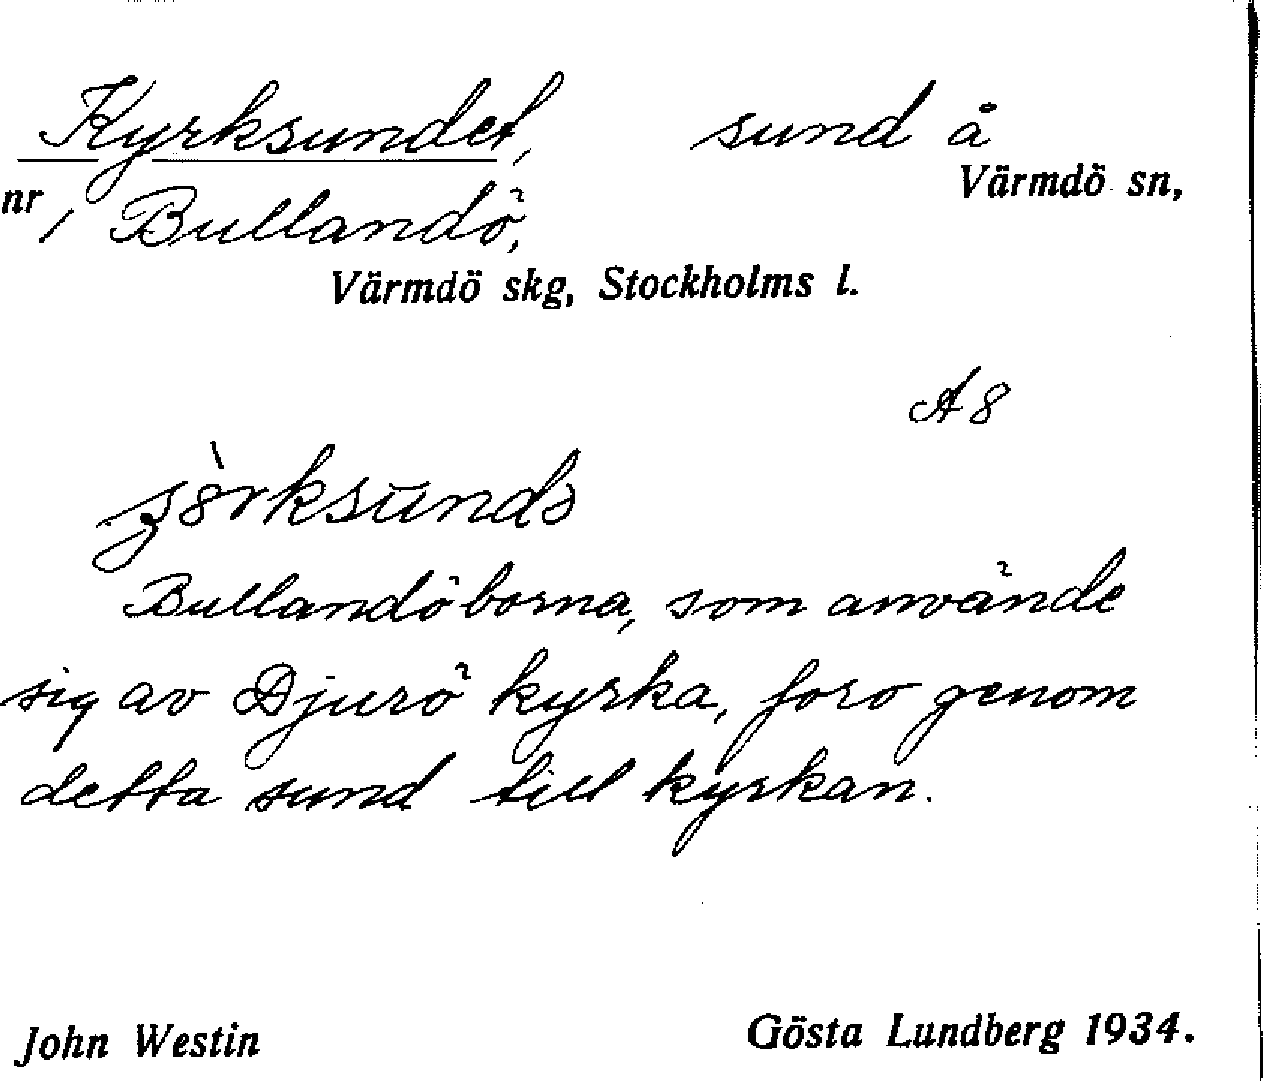 Kyrksundet, sund å
Värmdö sn,
nr 1 Bullandö,
Värmdö skg, Stockholms l.
A 8
Bullandöborna, som använde
sig av Djurö kyrka, foro genom
detta sund till kyrkan.
John Westin Gösta Lundberg 1934.